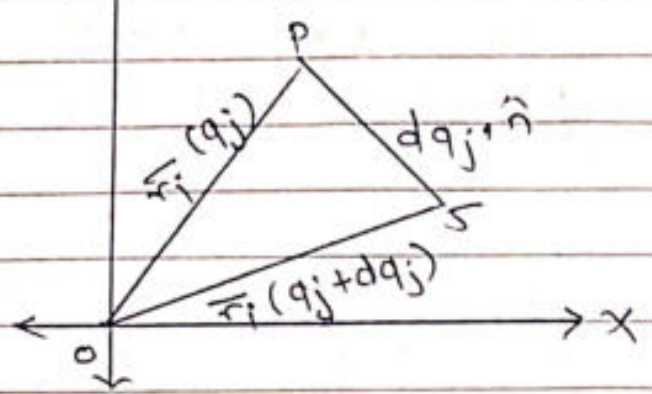 P
r̅ᵢ (qⱼ)
dqⱼ, n̂
S
r̅ᵢ (qⱼ+dqⱼ)
X
O